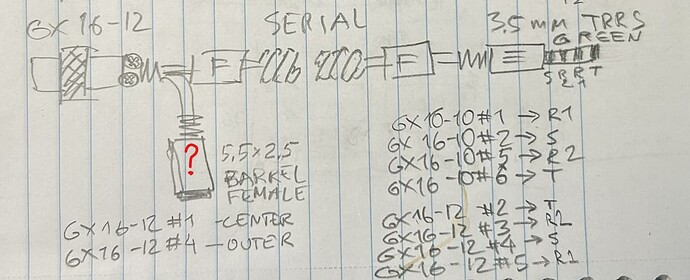 GX 16-12
SERIAL
3.5 mm TRRS
GREEN
F
F
S R R T
2 1
?
5,5 x 2,5
BARREL
FEMALE
GX 16-12 #1 - CENTER
GX 16-12 #4 - OUTER
GX 16-10 #1 → R1
GX 16-10 #2 → S
GX 16-10 #5 → R2
GX 16-10 #6 → T
GX 16-12 #2 → T
GX 16-12 #3 → R2
GX 16-12 #4 → S
GX 16-12 #5 → R1